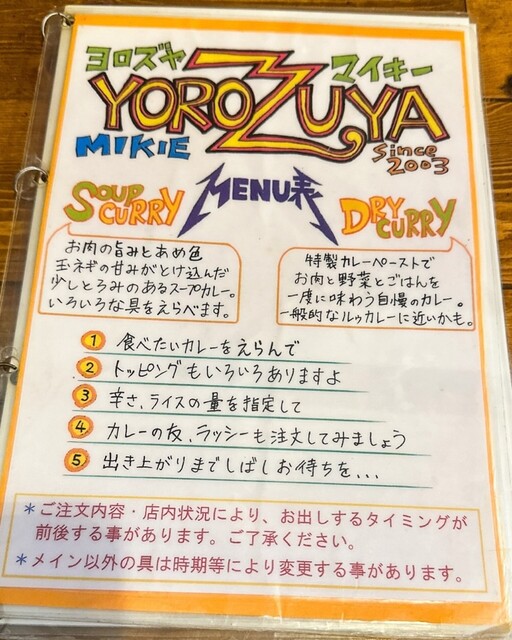 ヨロズヤ マイキー
YOROZUYA
MIKIE since 2003
SOUP CURRY MENU表 DRY CURRY
お肉の旨みとあめ色
玉ネギの甘みがとけ込んだ
少しとろみのあるスープカレー。
いろいろな具をえらべます。
特製カレーペーストで
お肉と野菜とごはんを
一度に味わう自慢のカレー。
一般的なルゥカレーに近いかも。
1 食べたいカレーをえらんで
2 トッピングもいろいろありますよ
3 辛さ、ライスの量を指定して
4 カレーの友、ラッシーも注文してみましょう
5 出き上がりまでしばしお待ちを...
*ご注文内容・店内状況により、お出しするタイミングが
前後する事があります。ご了承ください。
*メイン以外の具は時期等により変更する事があります。